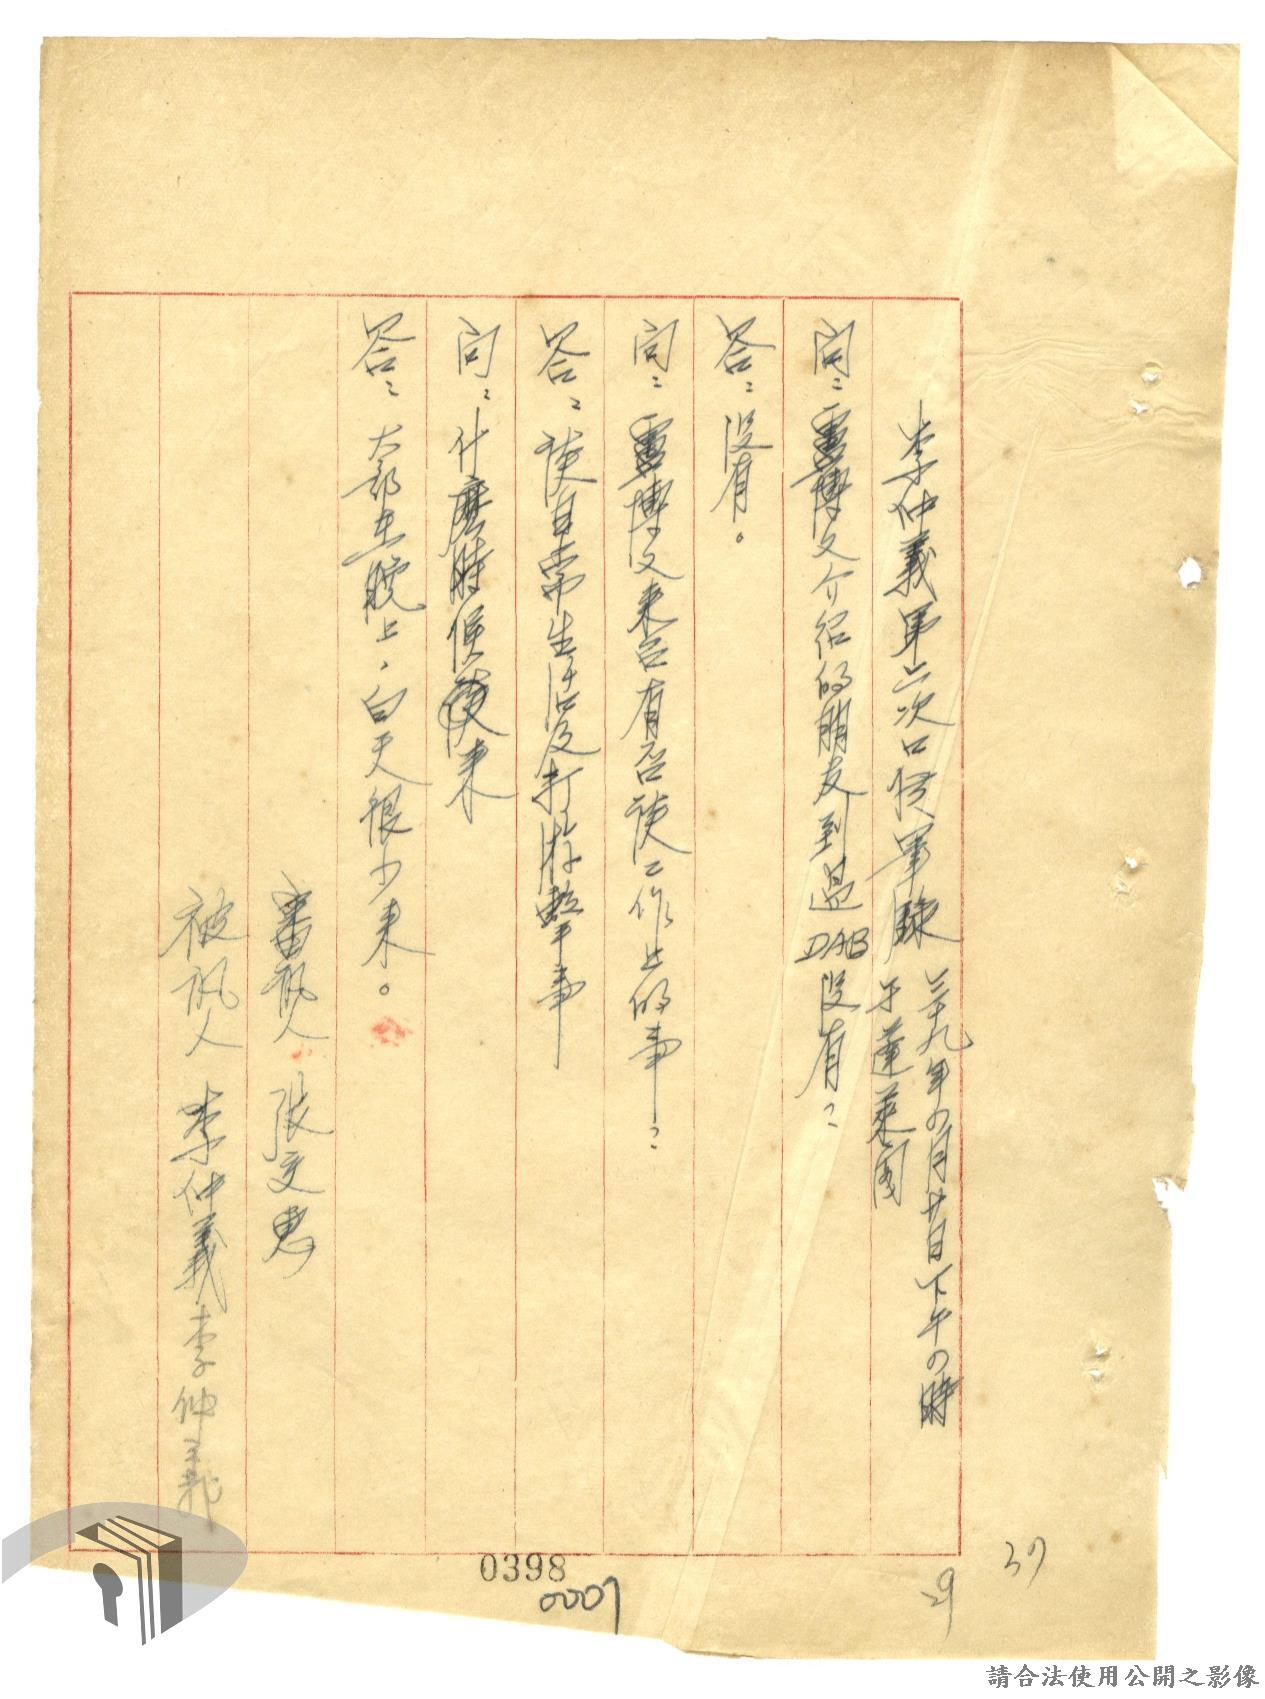 李仲義第六次口供筆錄 三十九年の月廿日下午の時
于蓬萊閣
問：雷博文介紹的朋友到過DAB沒有？
答：沒有。
問：雷博文来台有否談工作上的事？
答：談日常生活及打游擊事
問：什麼時候談来
答：大部在晚上，白天很少来。
審訊人 張文惠
被訊人 李仲義 李仲義
0398
0007
29
37
請合法使用公開之影像